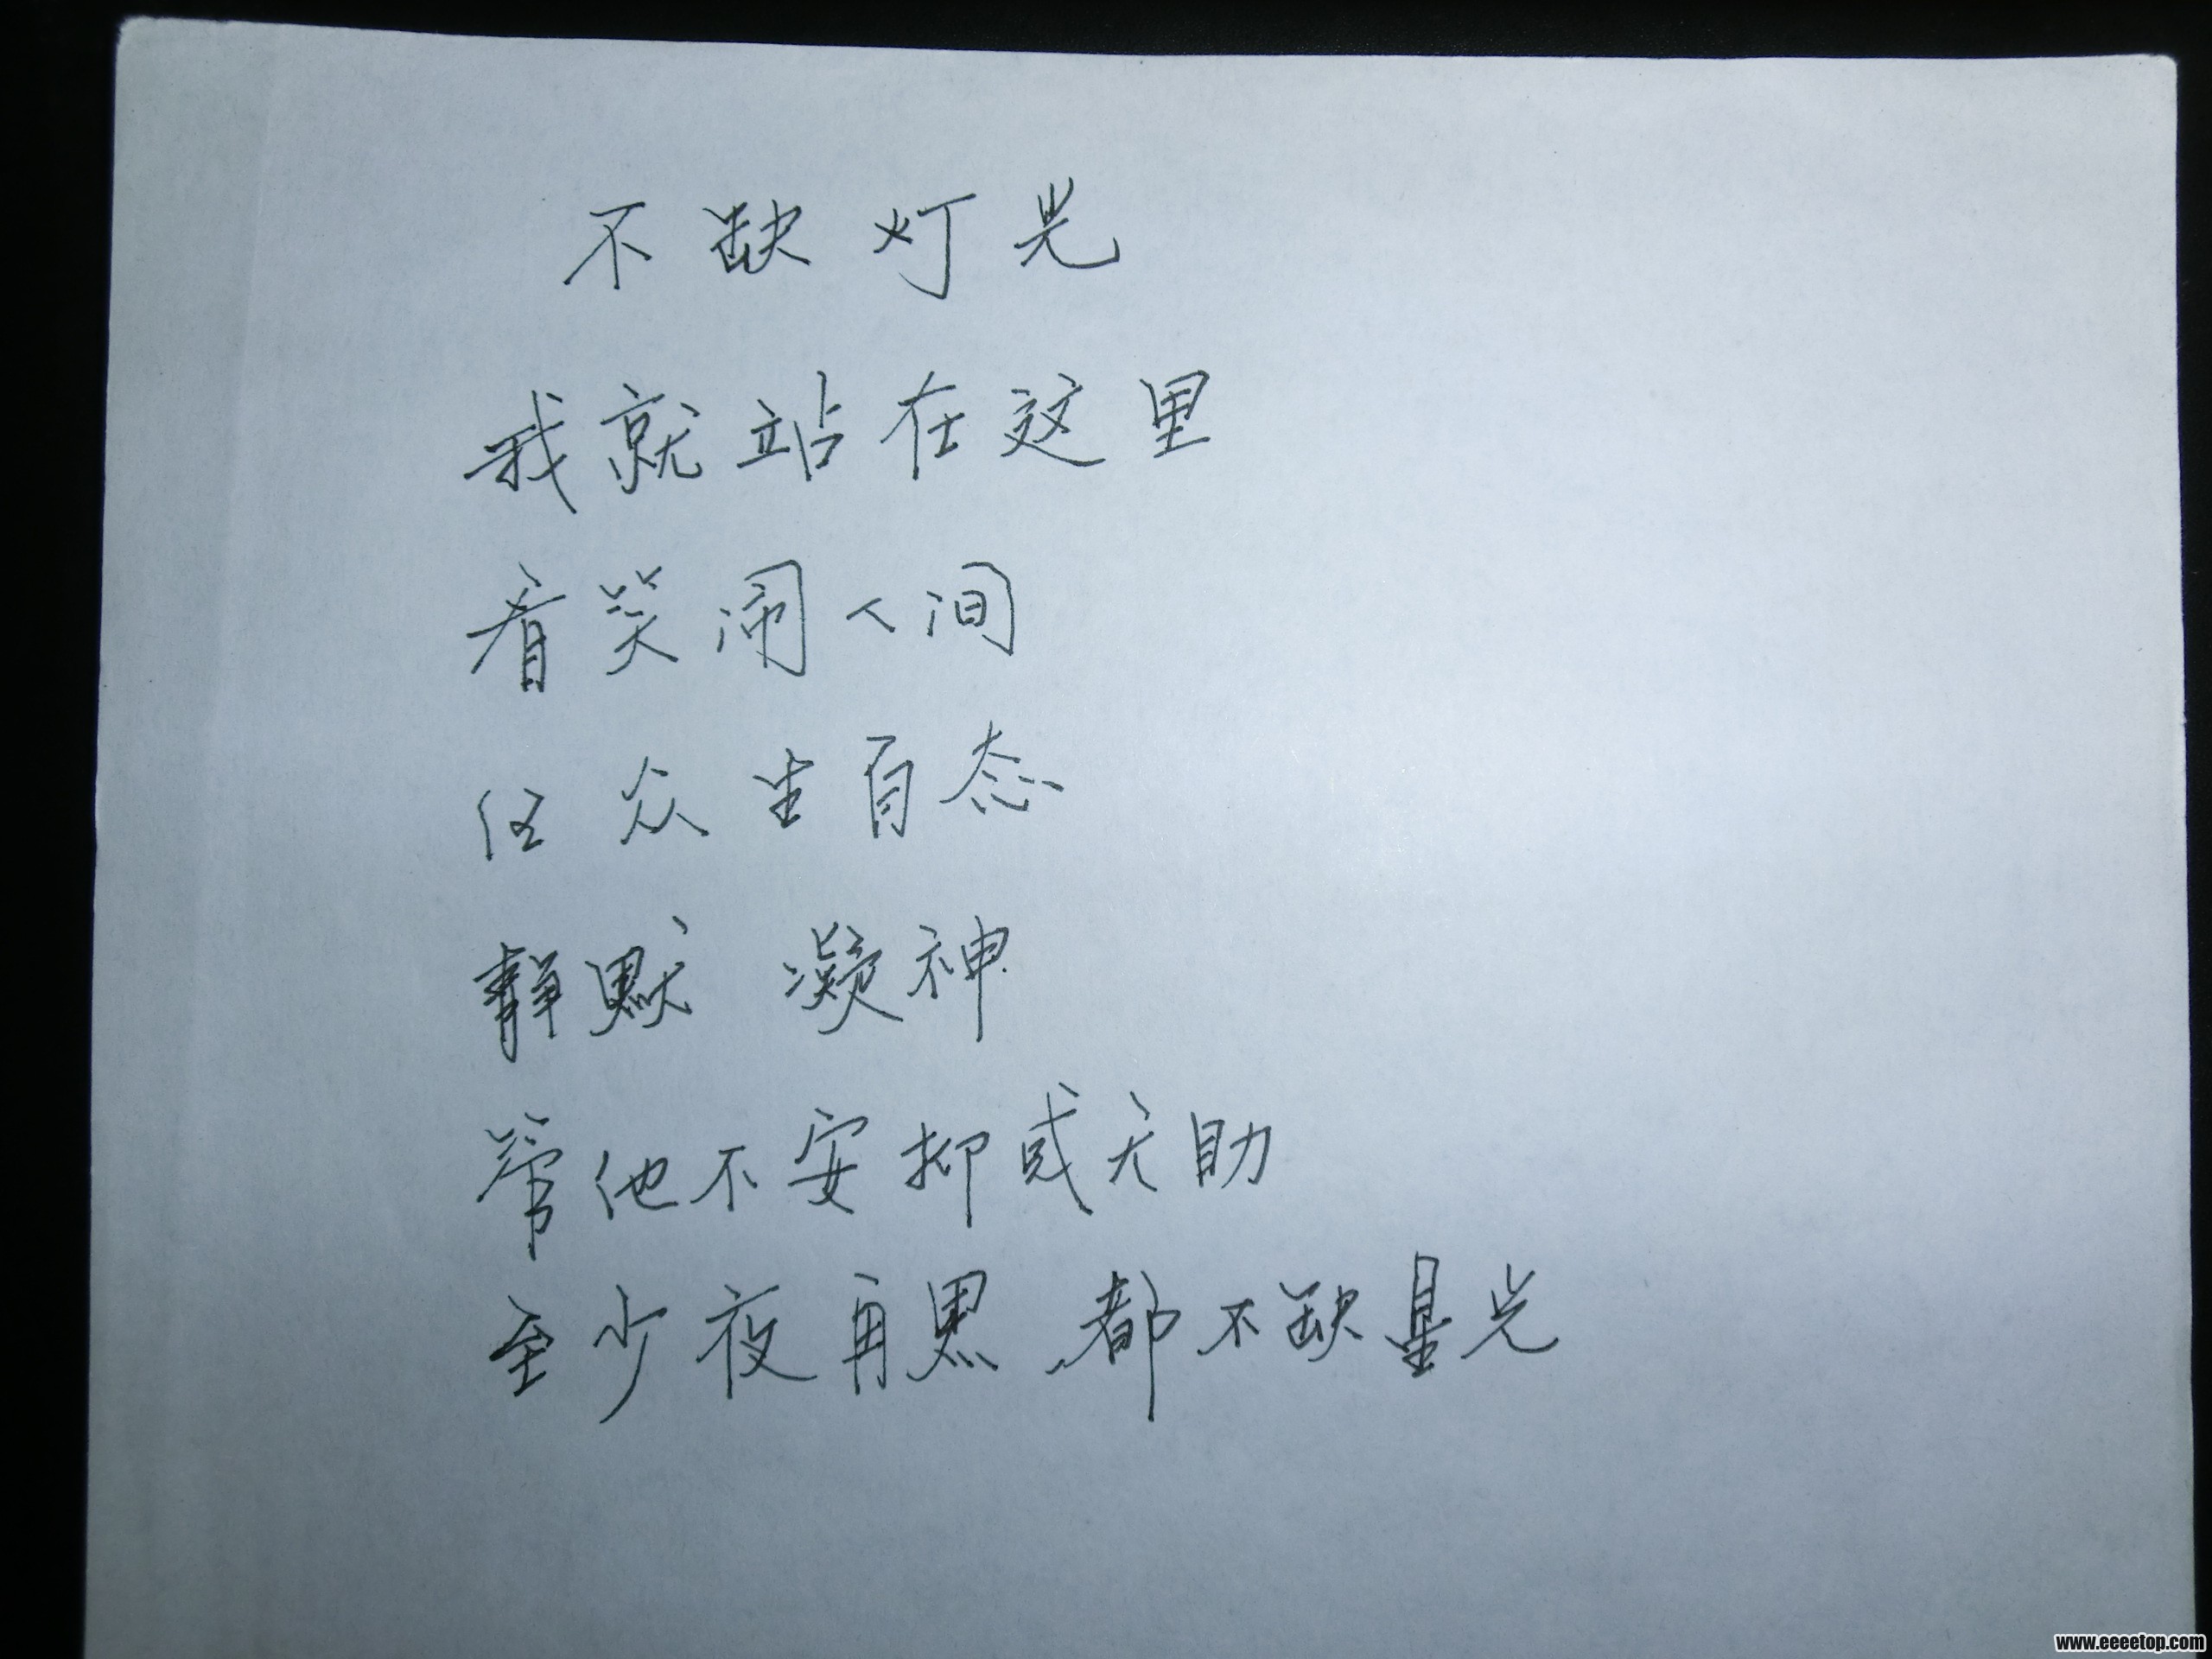 不缺灯光
我就站在这里
看笑闹人间
任众生百态
静默 凝神
管他不安抑或无助
至少夜再黑,都不缺星光
www.eeeetop.com